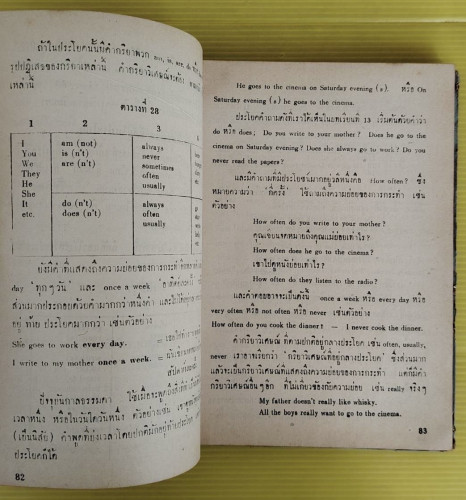 ถ้าในประโยคนั้นมีคำกริยาพวก
รูปปฏิเสธของกริยาเหล่านี้ คำกริยาวิเศษณ์จะต้อง
เหล่านี้
ตารางที่ 28
1 2 3
I am (not) always
You is (n't) never
We are (n't) sometimes
They often
He usually
She
It do (n't) always
etc. does (n't) often
usually
ยังมีคำที่แสดงถึงความบ่อยของการกระทำ
day 'ทุกๆวัน' และ once a week
ส่วนมากประกอบด้วยคำมากกว่าหนึ่งคำ และไม่
อยู่ ท้าย ประโยคมากกว่า เช่นตัวอย่าง
She goes to work every day.
I write to my mother once a week.
ปัจจุบันกาลธรรมดา ใช้เมื่อจะพูดถึงสิ่งที่
เวลาหนึ่ง หรือในวันใดวันหนึ่ง ตัวอย่างเช่น
(เป็นนิสัย) คำพูดที่บ่งเวลาโดยปกติมักอยู่ท้ายประโยค
ประโยคก็ได้
82
He goes to the cinema on Saturday evening (s). หรือ On
Saturday evening (s) he goes to the cinema.
ประโยคคำถามดังที่เราได้เห็นในบทเรียนที่ 13 เริ่มต้นด้วยคำว่า
do หรือ does; Do you write to your mother? Does he go to the
cinema on Saturday evening? Does she always go to work? Do you
never read the papers?
และมีคำถามที่มีประโยชน์มากอยู่วลีหนึ่งคือ How often? ซึ่ง
หมายความว่า 'กี่ครั้ง' ใช้ถามถึงความบ่อยของการกระทำ เช่น
ตัวอย่าง
How often do you write to your mother?
คุณเขียนจดหมายถึงคุณแม่บ่อยเท่าไร?
How often does he go to the cinema?
เขาไปดูหนังบ่อยเท่าไร?
How often do they listen to the radio?
และคำตอบอาจจะเป็นดังนี้ once a week หรือ every day หรือ
very often หรือ not often หรือ never เช่นตัวอย่าง
How often do you cook the dinner? — I never cook the dinner.
คำกริยาวิเศษณ์ ที่ตามปกติอยู่กลางประโยค เช่น often, usually,
never เราอาจเรียกว่า 'กริยาวิเศษณ์ที่อยู่กลางประโยค' ซึ่งส่วนมาก
แล้วจะเป็นกริยาวิเศษณ์ที่แสดงถึงความบ่อยของการกระทำ แต่ก็มีคำ
กริยาวิเศษณ์อื่นๆอีก ที่ไม่เกี่ยวข้องกับความบ่อย เช่น really จริงๆ
My father doesn't really like whisky.
All the boys really want to go to the cinema.
83